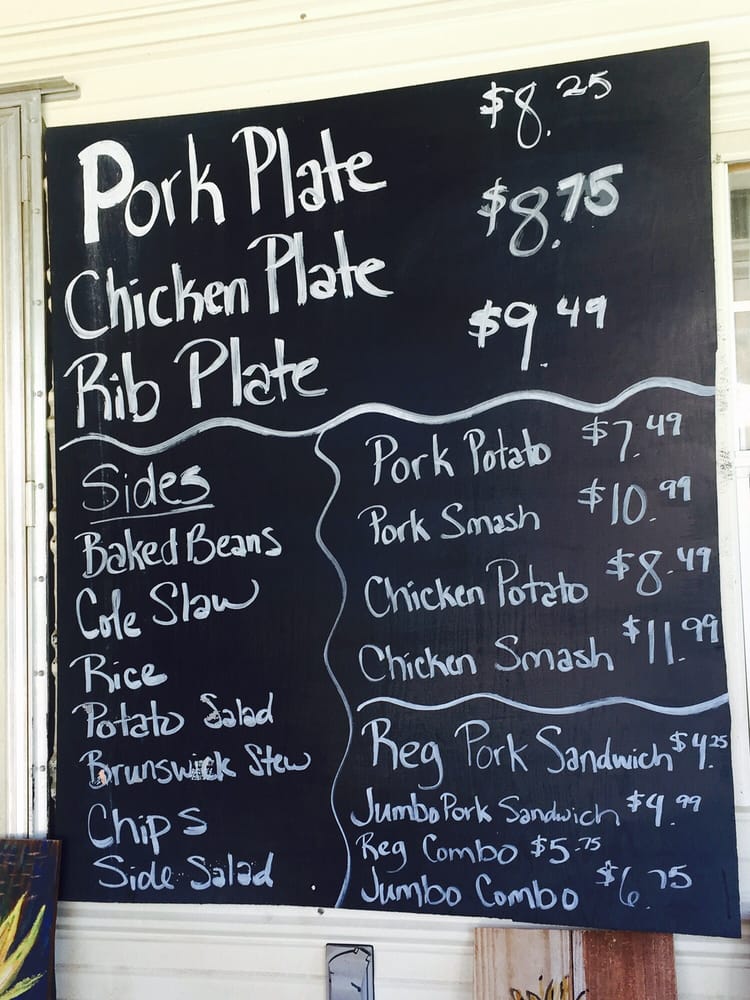 Pork Plate $8.25
Chicken Plate $8.75
Rib Plate $9.49
Sides
Baked Beans
Cole Slaw
Rice
Potato Salad
Brunswick Stew
Chips
Side Salad
Pork Potato $7.49
Pork Smash $10.99
Chicken Potato $8.49
Chicken Smash $11.99
Reg Pork Sandwich $4.25
Jumbo Pork Sandwich $4.99
Reg Combo $5.75
Jumbo Combo $6.75